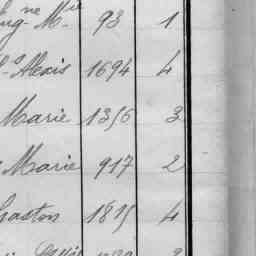 ug^ne M^ie 93 1
Alexis 1694 4
Marie 1356 3
Marie 917 2
Gaston 1815 4